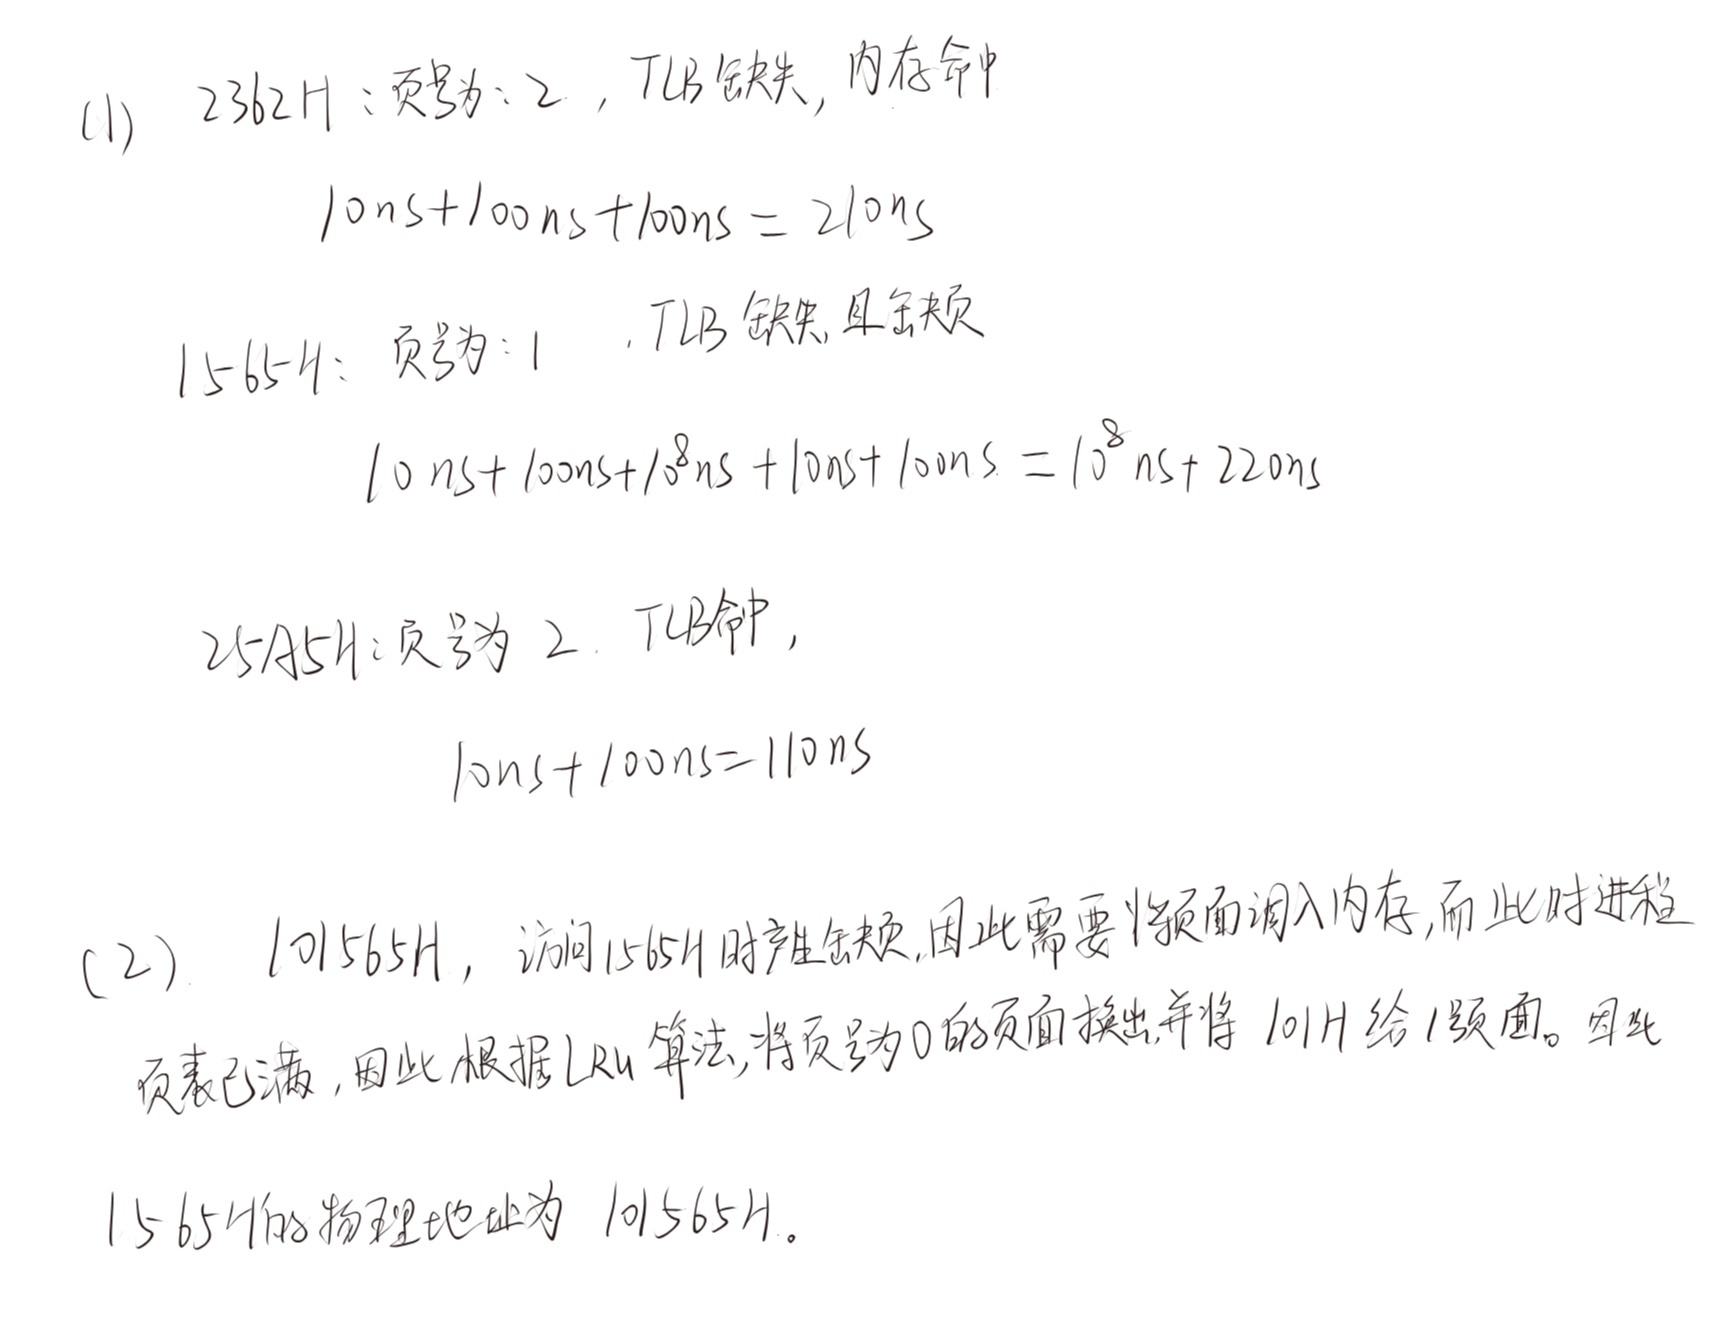 (1) 2362H：页号为：2，TLB缺失，内存命中
10ns+100ns+100ns=210ns
1565H：页号为：1，TLB缺失，且缺页
10ns+100ns+10⁸ns+10ns+100ns=10⁸ns+220ns
25A5H：页号为2. TLB命中，
10ns+100ns=110ns
(2). 101565H，访问1565H时产生缺页，因此需要将页面调入内存，而此时进程
页表已满，因此根据LRU算法，将页号为0的页面换出，并将101H给1号页面。因此
1565H的物理地址为101565H。